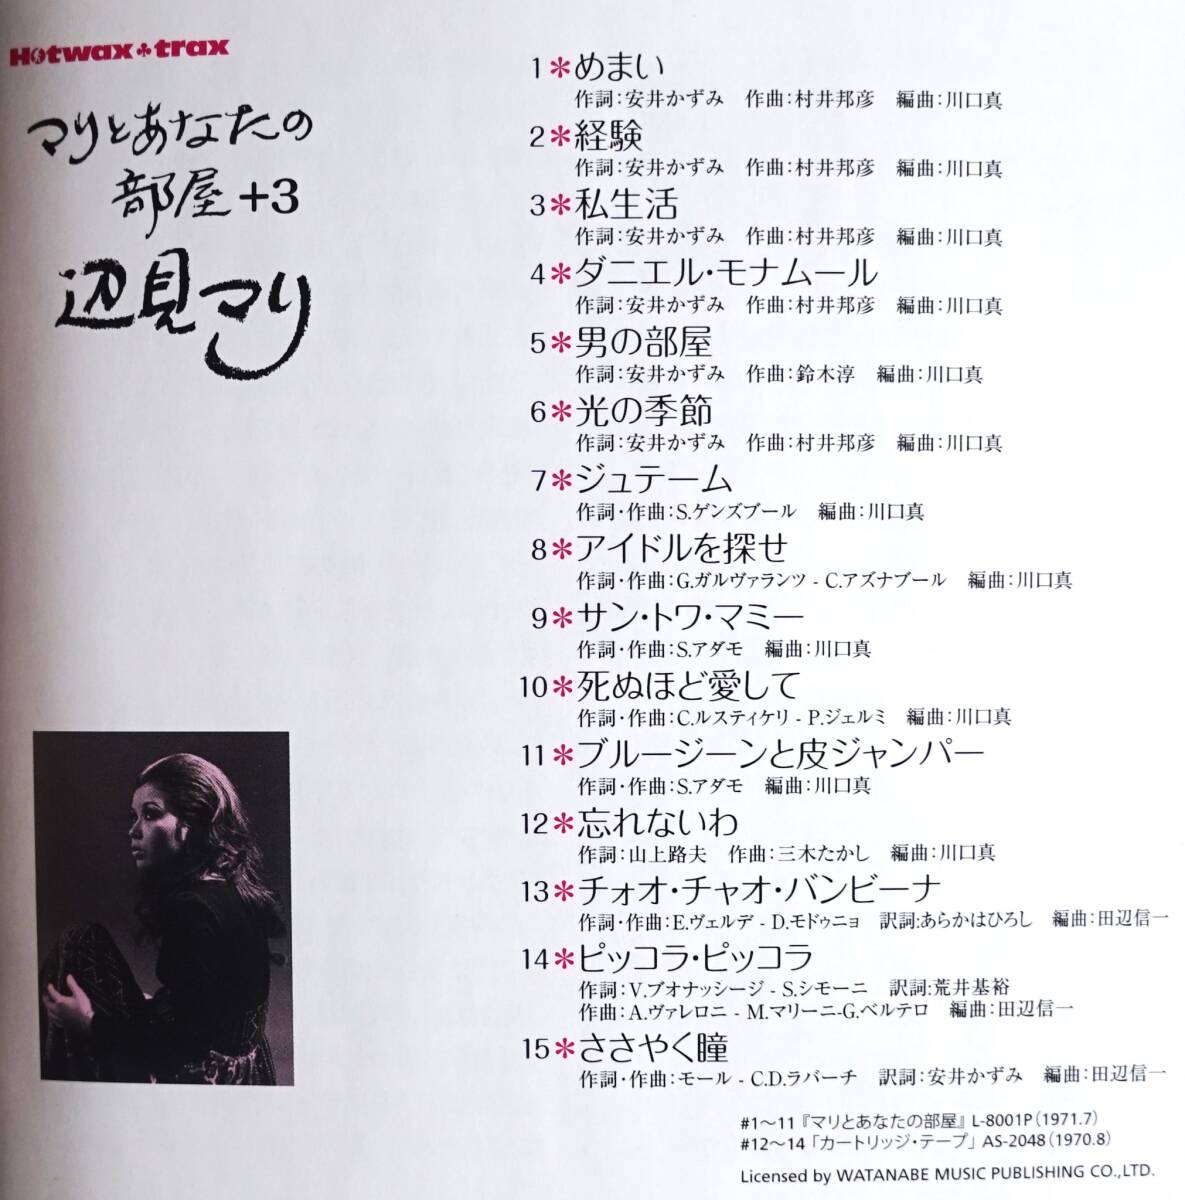 Hotwax trax
マリとあなたの
部屋+3
辺見マリ
1*めまい
作詞:安井かずみ 作曲:村井邦彦 編曲:川口真
2*経験
作詞:安井かずみ 作曲:村井邦彦 編曲:川口真
3*私生活
作詞:安井かずみ 作曲:村井邦彦 編曲:川口真
4*ダニエル・モナムール
作詞:安井かずみ 作曲:村井邦彦 編曲:川口真
5*男の部屋
作詞:安井かずみ 作曲:鈴木淳 編曲:川口真
6*光の季節
作詞:安井かずみ 作曲:村井邦彦 編曲:川口真
7*ジュテーム
作詞・作曲:S.ゲンズブール 編曲:川口真
8*アイドルを探せ
作詞・作曲:G.ガルヴァランツ - C.アズナブール 編曲:川口真
9*サン・トワ・マミー
作詞・作曲:S.アダモ 編曲:川口真
10*死ぬほど愛して
作詞・作曲:C.ルスティケリ - P.ジェルミ 編曲:川口真
11*ブルージーンと皮ジャンパー
作詞・作曲:S.アダモ 編曲:川口真
12*忘れないわ
作詞:山上路夫 作曲:三木たかし 編曲:川口真
13*チォオ・チャオ・バンビーナ
作詞・作曲:E.ヴェルデ - D.モドゥニョ 訳詞:あらかはひろし 編曲:田辺信一
14*ピッコラ・ピッコラ
作詞:V.ブオナッシージ - S.シモーニ 訳詞:荒井基裕
作曲:A.ヴァレロニ - M.マリーニ-G.ベルテロ 編曲:田辺信一
15*ささやく瞳
作詞・作曲:モール - C.D.ラバーチ 訳詞:安井かずみ 編曲:田辺信一
#1〜11『マリとあなたの部屋』L-8001P(1971.7)
#12〜14「カートリッジ・テープ」AS-2048(1970.8)
Licensed by WATANABE MUSIC PUBLISHING CO.,LTD.